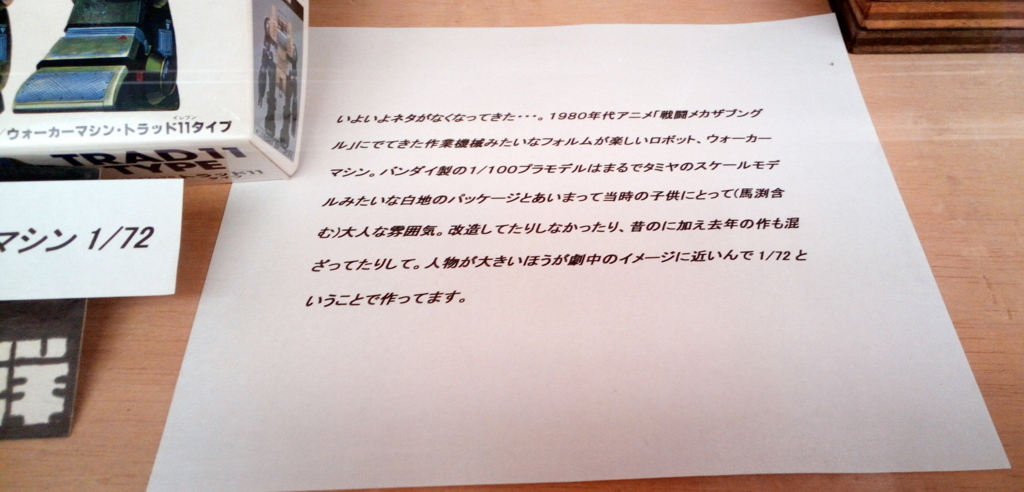 イレブン
ウォーカーマシン・トラッド11タイプ
TRAD11
TYPE
マシン 1/72
いよいよネタがなくなってきた・・・。1980年代アニメ「戦闘メカザブング
ル」にでてきた作業機械みたいなフォルムが楽しいロボット、ウォーカー
マシン。バンダイ製の1/100プラモデルはまるでタミヤのスケールモデ
ルみたいな白地のパッケージとあいまって当時の子供にとって(馬渕含
む)大人な雰囲気。改造してたりしなかったり、昔のに加え去年の作も混
ざってたりして。人物が大きいほうが劇中のイメージに近いんで1/72と
いうことで作ってます。